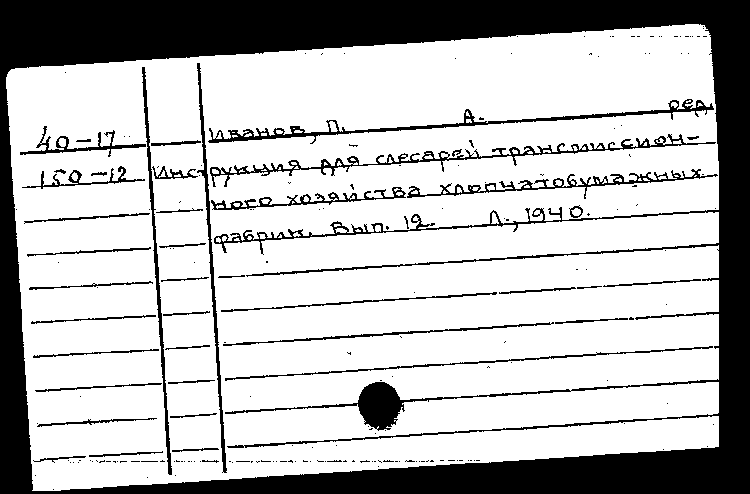 40-17 Иванов, П. А. ред.
150-12 Инструкция для слесарей трансмиссион-
ного хозяйства хлопчатобумажных
фабрик. Вып. 12. Л., 1940.